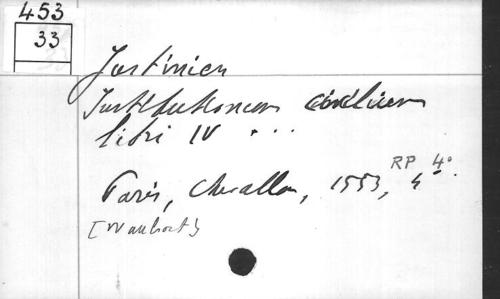 453
33
Justinien
Institutionum civilium
libri IV ...
RP 4°
Paris, Chevallon, 1553, 4°.